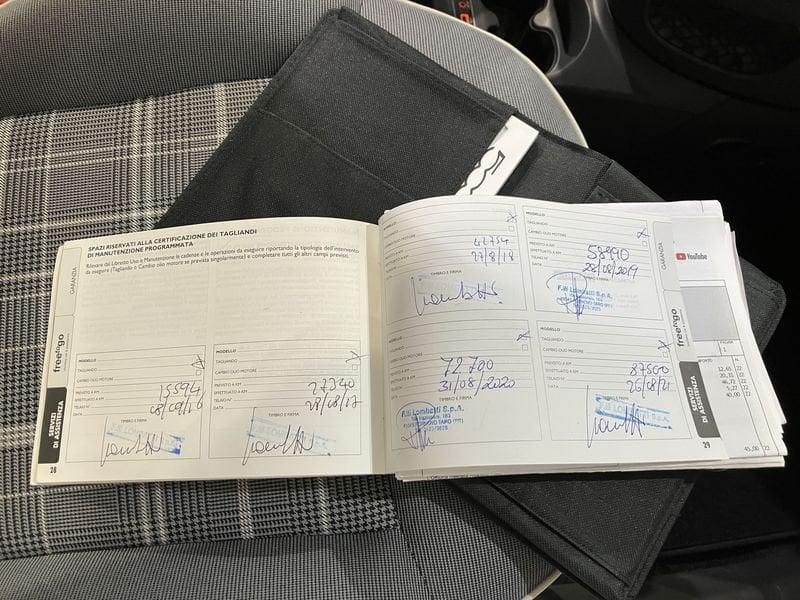 SPAZI RISERVATI ALLA CERTIFICAZIONE DEI TAGLIANDI
DI MANUTENZIONE PROGRAMMATA
Rilevare dal Libretto Uso e Manutenzione le cadenze e le operazioni da eseguire riportando la tipologia dell'intervento
da eseguire (Tagliando o Cambio olio motore se previsto singolarmente) e completare tutti gli altri campi previsti.
GARANZIA
freetogo
SERVIZI
DI ASSISTENZA
28
MODELLO
TAGLIANDO
CAMBIO OLIO MOTORE
PREVISTO A KM
EFFETTUATO A KM 15594
TELAIO N°
DATA 08/09/16
TIMBRO E FIRMA
MODELLO
TAGLIANDO
CAMBIO OLIO MOTORE
PREVISTO A KM
EFFETTUATO A KM 27340
TELAIO N°
DATA 28/08/17
TIMBRO E FIRMA
42754
27/8/18
TIMBRO E FIRMA
MODELLO
TAGLIANDO
CAMBIO OLIO MOTORE
PREVISTO A KM
EFFETTUATO A KM 58990
TELAIO N°
DATA 28/08/2019
TIMBRO E FIRMA
F.lli Lombatti S.p.A.
MODELLO
TAGLIANDO
CAMBIO OLIO MOTORE
PREVISTO A KM
EFFETTUATO A KM 72700
TELAIO N°
DATA 31/08/2020
TIMBRO E FIRMA
F.lli Lombatti S.p.A.
MODELLO
TAGLIANDO
CAMBIO OLIO MOTORE
PREVISTO A KM
EFFETTUATO A KM 87500
TELAIO N°
DATA 26/08/21
TIMBRO E FIRMA
F.lli LOMBATTI S.p.A.
GARANZIA
freetogo
SERVIZI
DI ASSISTENZA
29
YouTube
12,65 22
20,31 22
46,72 22
5,27 22
40,00 22
45,00 22
500